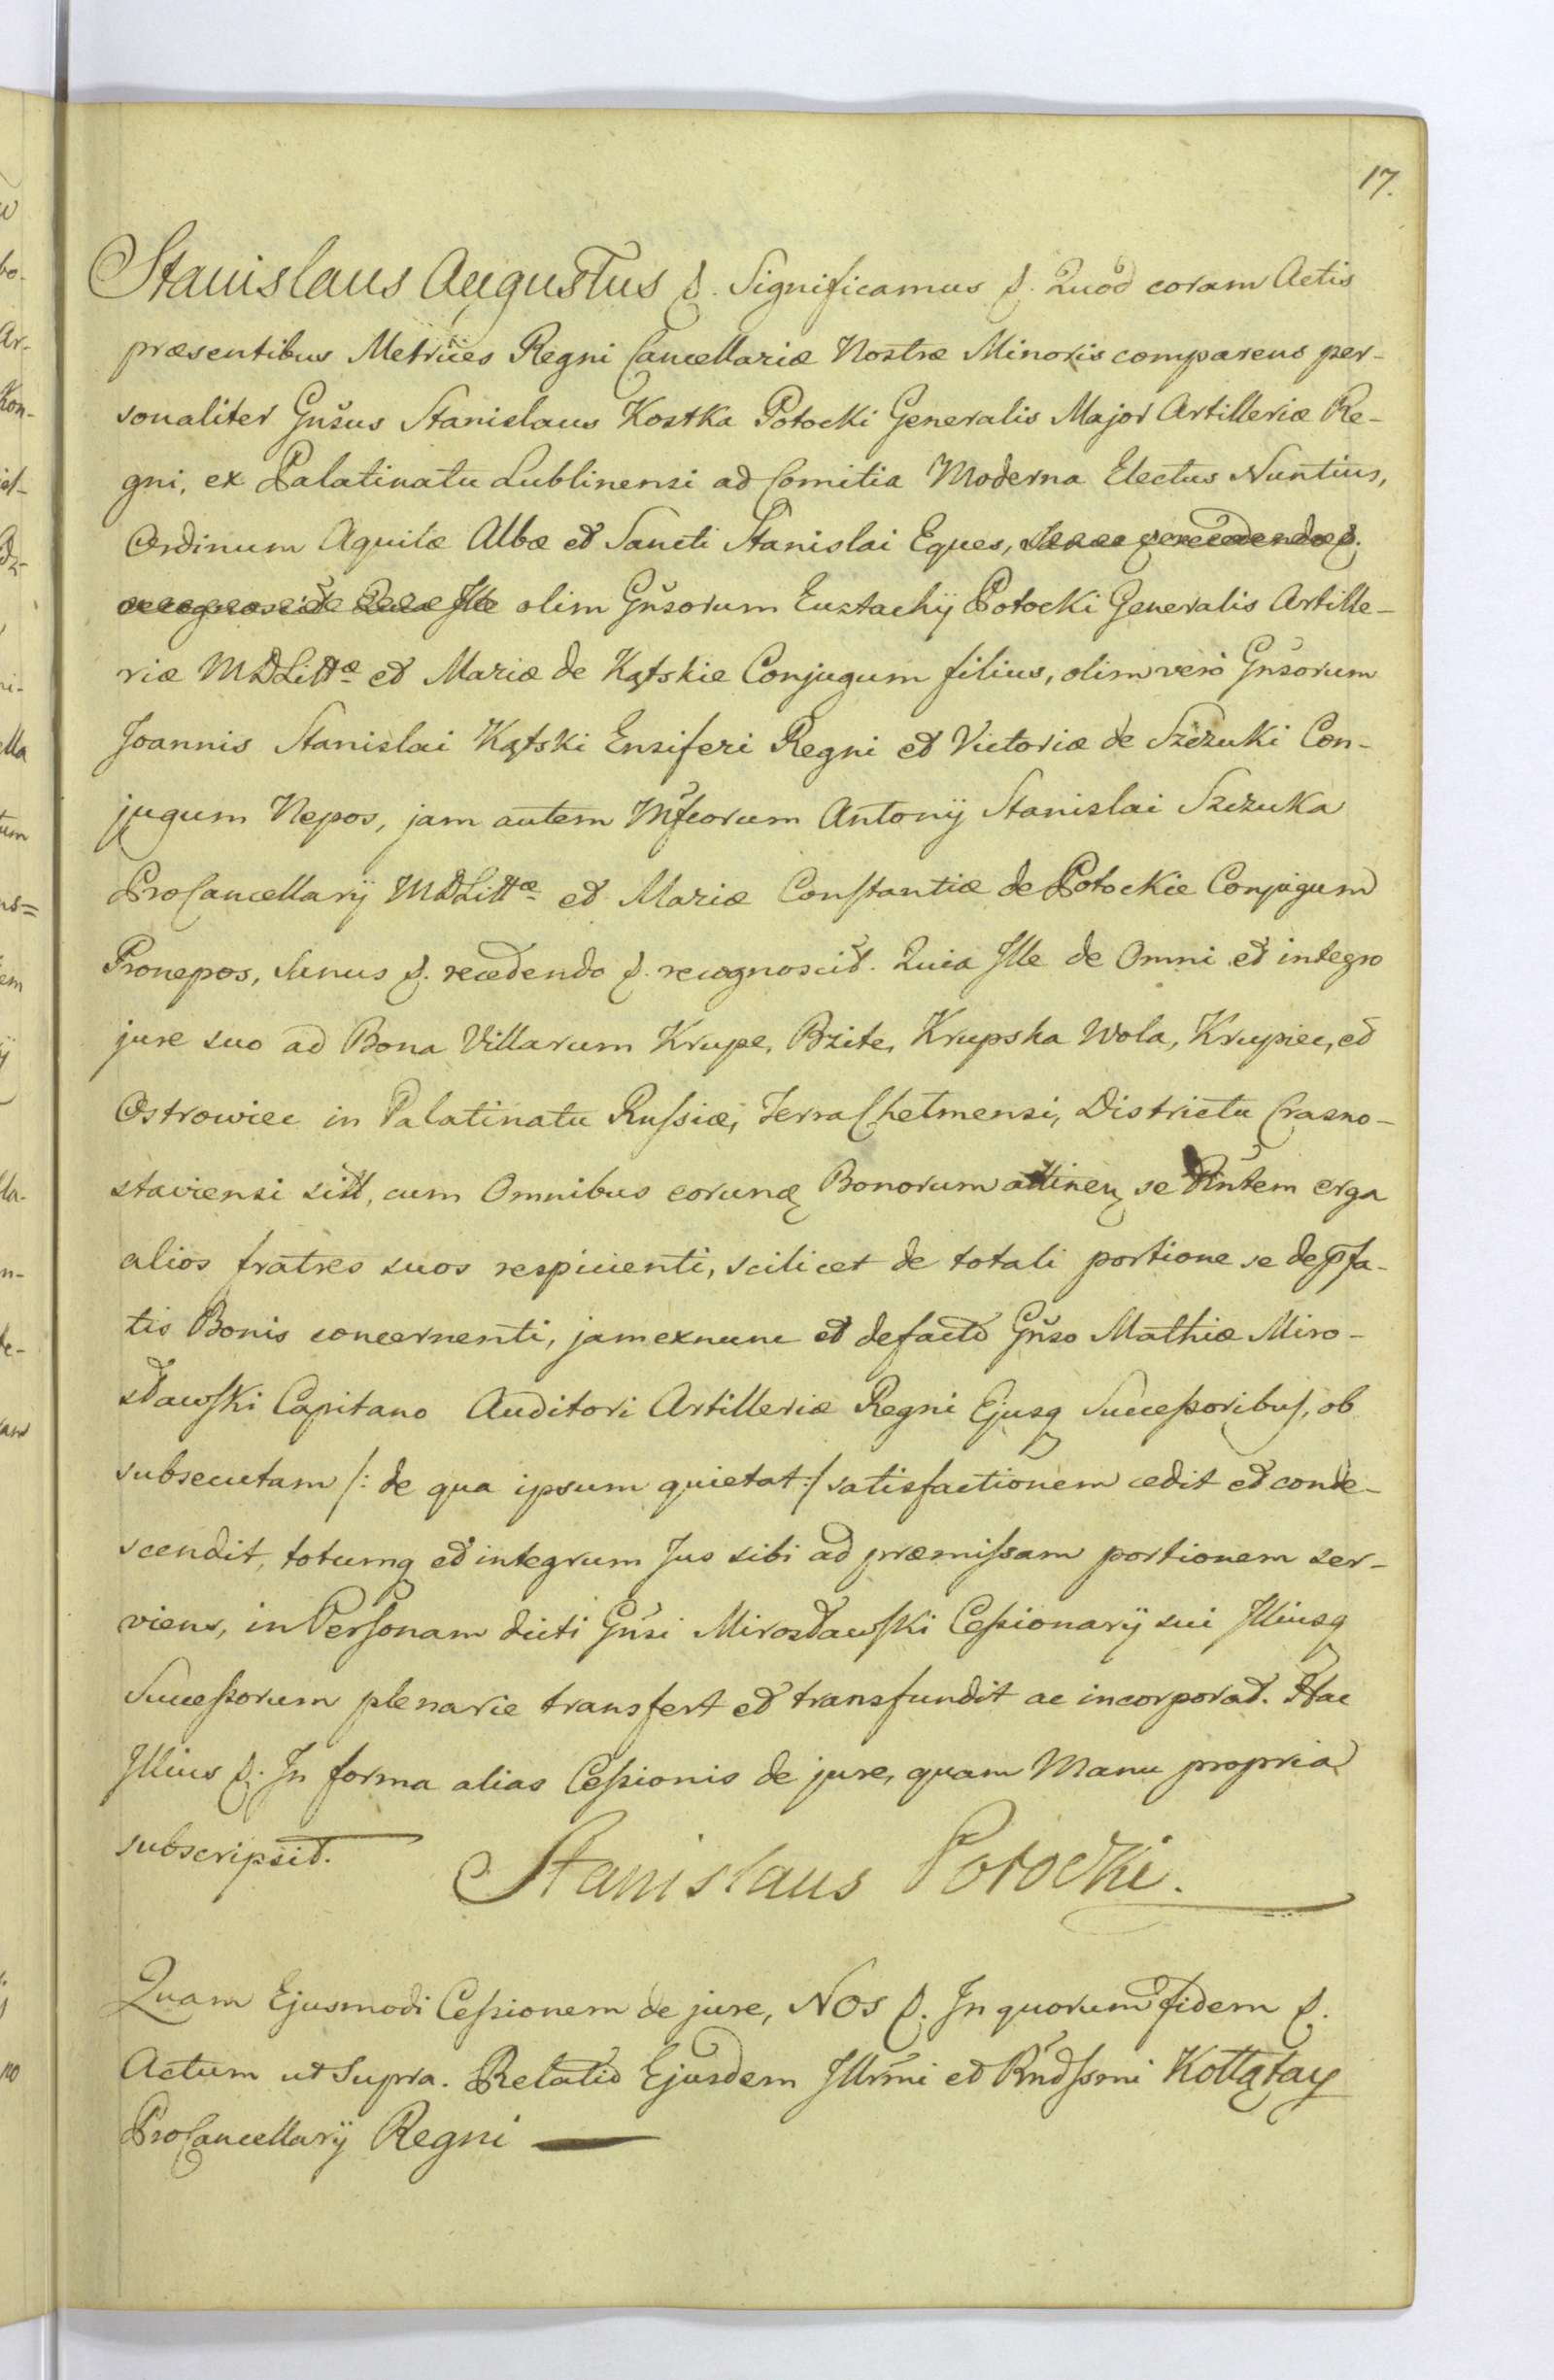 17.
Stanislaus Augustus &. Significamus &. Quod coram Actis
præsentibus Metrices Regni Cancellariæ Nostræ Minoris comparens per-
sonaliter Gnsus Stanislaus Kostka Potocki Generalis Major Artilleriæ Re-
gni, ex Palatinatu Lublinensi ad Comitia Moderna Electus Nuntius,
Ordinum Aquilæ Albæ et Sancti Stanislai Eques, Sanus &. recedendo &.
recognoscit Quia Ille olim Gnsorum Eustachij Potocki Generalis Artille-
riæ MDLittæ et Mariæ de Kątskie Conjugum filius, olim vero Gnsorum
Joannis Stanislai Kątski Ensiferi Regni et Victoriæ de Szczuki Con-
jugum Nepos, jam autem Mfcorum Antonij Stanislai Szczuka
ProCancellarij MDLittæ et Mariæ Constantiæ de Potockie Conjugum
Pronepos, Sanus &. recedendo &. recognoscit. Quia Ille de Omni et integro
jure suo ad Bona Villarum Krupe, Bzite, Krupska Wola, Krupiec, et
Ostrowiec in Palatinatu Russiæ, Terra Chełmensi, Districtu Crasno-
staviensi sitt, cum Omnibus eorundꝫ Bonorum attinenꝫ se Dntem erga
alios fratres suos respicienti, scilicet de totali portione se de pfa-
tis Bonis concernenti, jam exnunc et defacto Gnso Mathiæ Miro-
sławski Capitano Auditori Artilleriæ Regni Ejusq Successoribus, ob
subsecutam /: de qua ipsum quietat :/ satisfactionem cedit et conde-
scendit, totumq et integrum Jus sibi ad præmissam portionem ser-
viens, in Personam dicti Gnsi Mirosławski Cessionarij sui Illiusq
Successorum plenarie transfert et transfundit ac incorporat. Hac
Illius &. In forma alias Cessionis de jure, quam Manu propria
subscripsit. Stanislaus Potocki.
Quam Ejusmodi Cessionem de jure, Nos &. In quorum fidem &.
Actum ut Supra. Relatio Ejusdem Illrmi et Rndssmi Kołłątay
ProCancellarij Regni